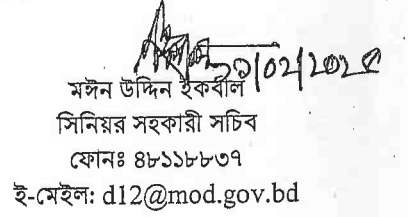 মঈন উদ্দিন ইকবাল
সিনিয়র সহকারী সচিব
ফোনঃ ৪৮১১৮৮৩৭
ই-মেইল: d12@mod.gov.bd